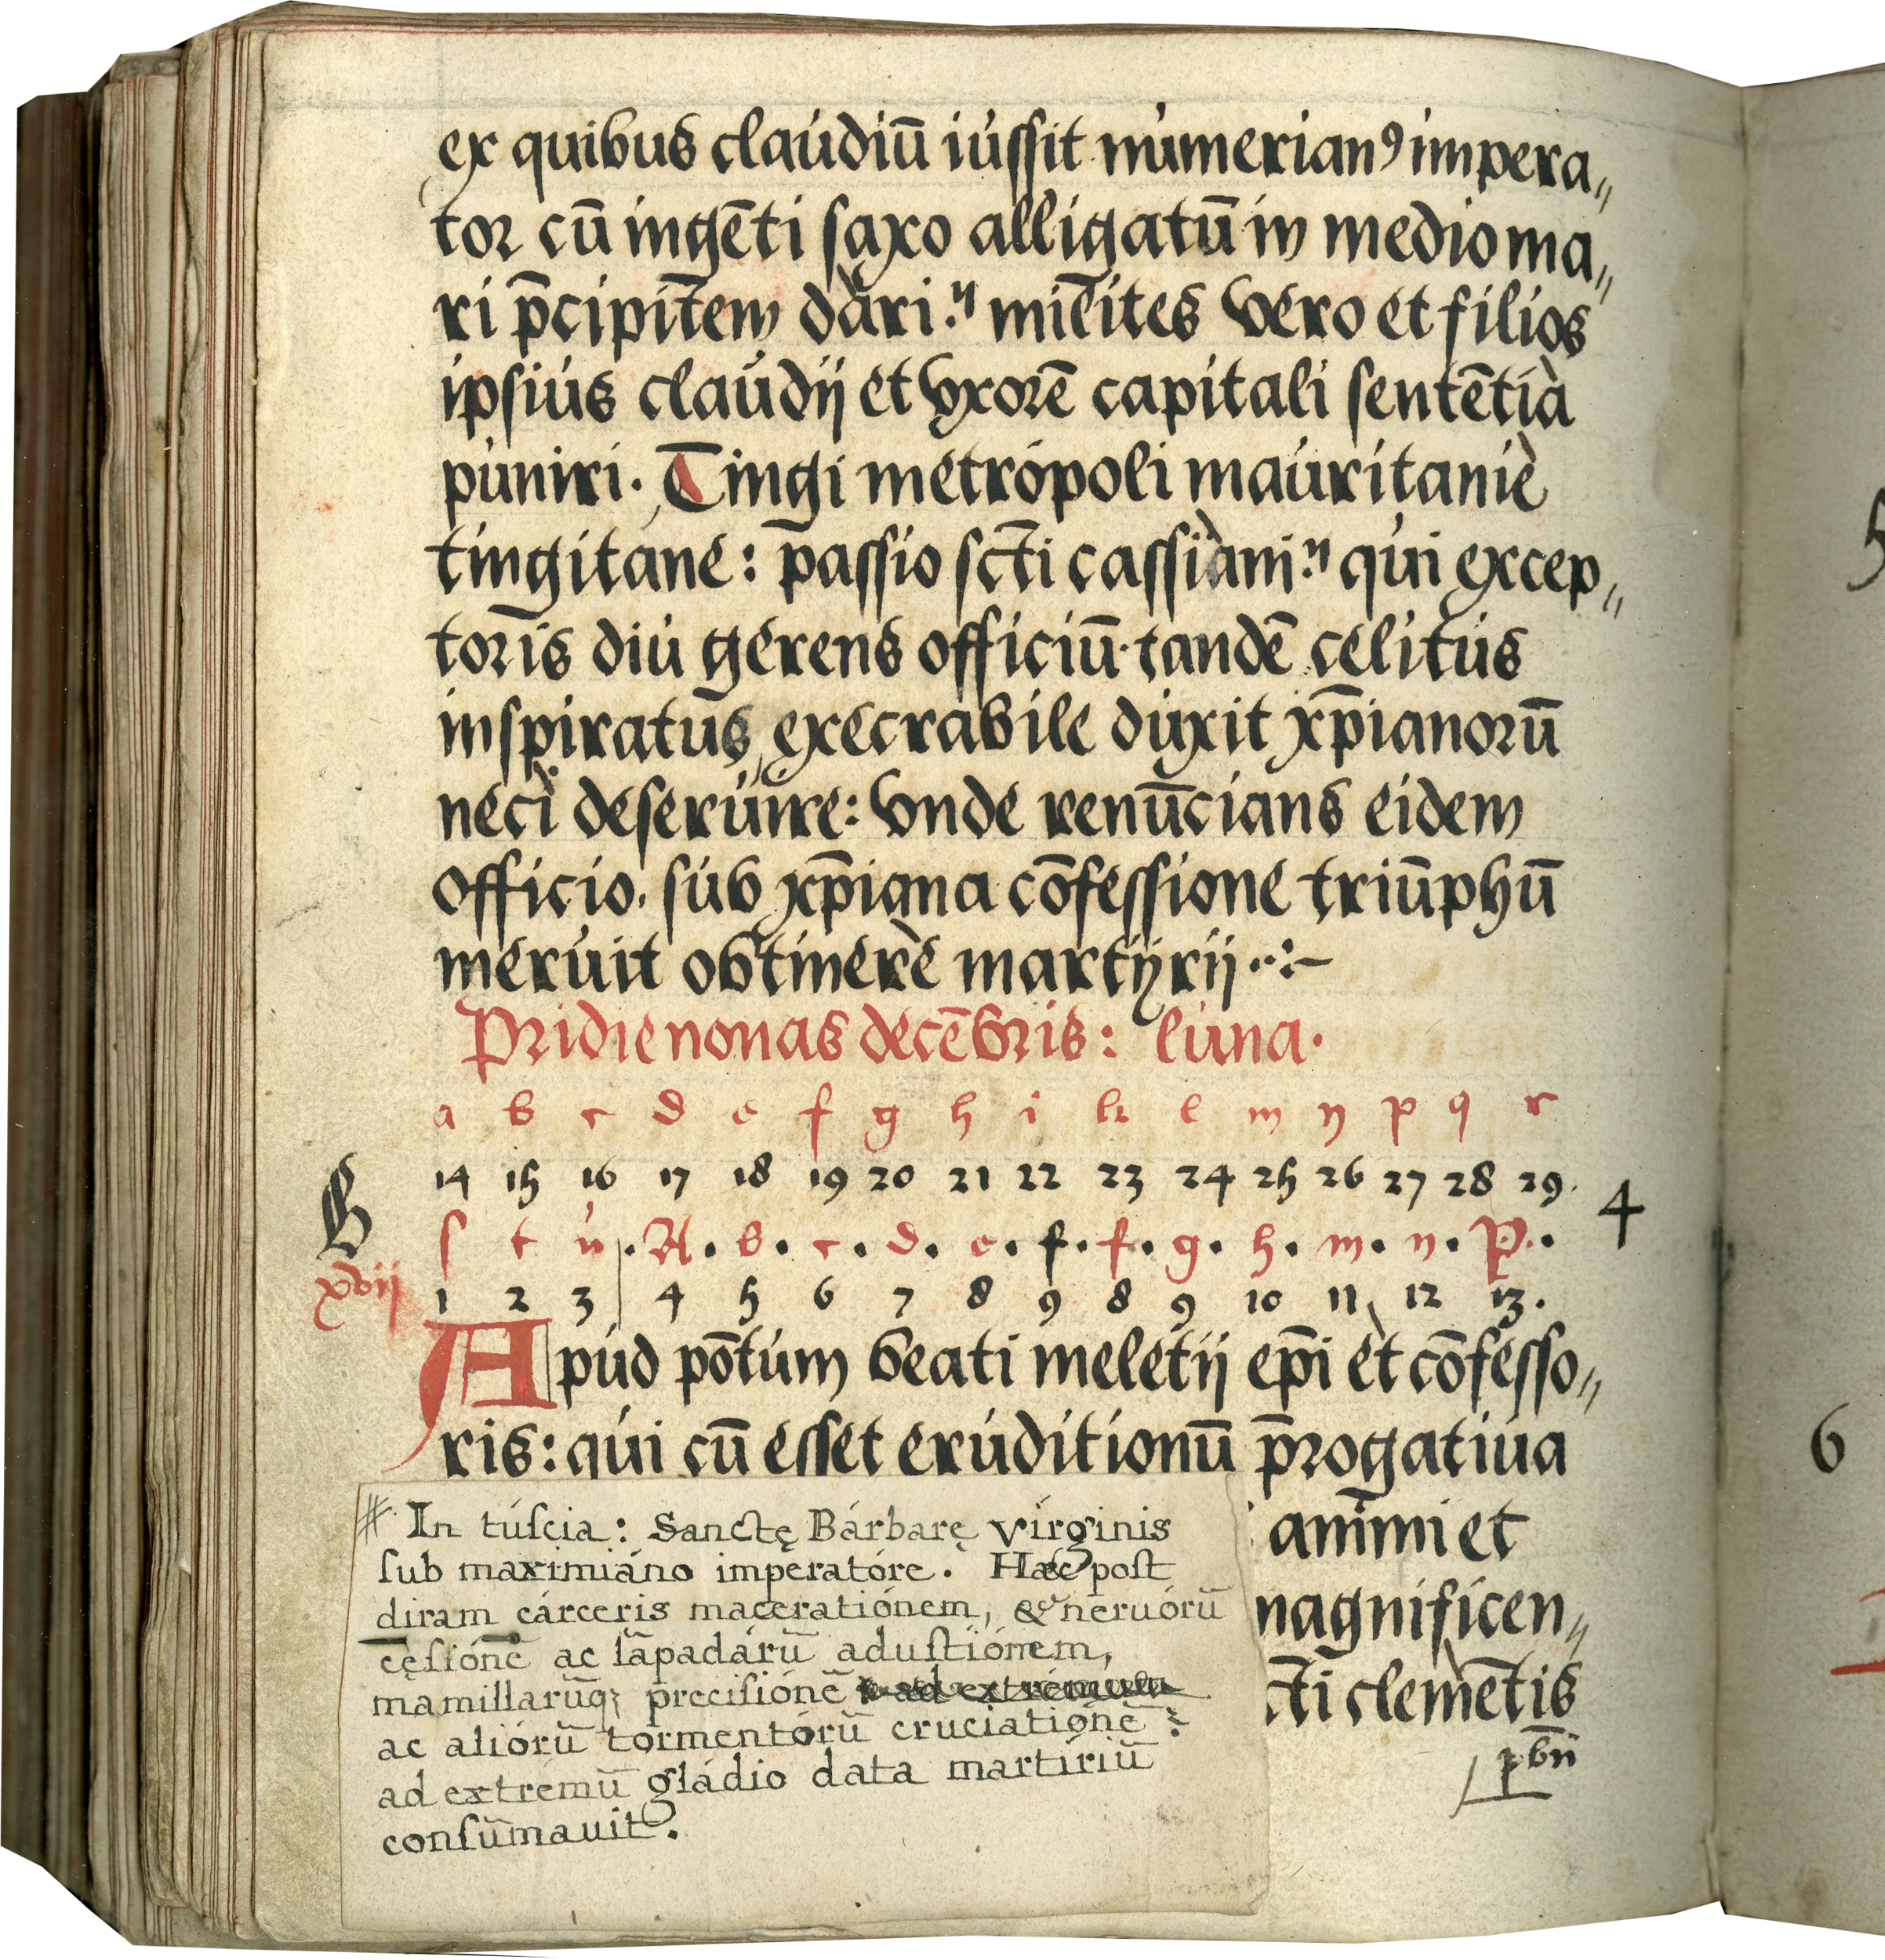 ex quibus claudiū iussit numerianꝰ impera„
tor cū ingēti saxo alligatū in medio ma„
ri p̄cipitē̄m dari. milites vero et filios
ipsius claudij et vxorē capitali sentētia
puniri. Tingi metropoli mauritanie
tingitane: passio sc̄ti cassiani. qui excep„
toris diu gerens officiū. tandē celitus
inspiratus, execrabile duxit xp̄ianorū
neci deseruire: vnde renūcians eidem
officio. sub xp̄iana cōfessione triūphū
meruit obtinere martyrij
Pridie nonas decēbris: luna.
a b c d e f g h i k l m n p q r
14 15 16 17 18 19 20 21 22 23 24 25 26 27 28 29.
B
4
s t u. A. b. c. d. e. f. f. g. h. m. n. P.
xvij
1 2 3 4 5 6 7 8 9 8 9 10 11 12 13.
Apud pōtum beati meletij ep̄i et cōfesso„
ris: qui cū esset eruditionū p̄rogatiua
animi et
magnificen„
c̄ti clemētis
In túſcia: Sanctę Bárbarę vírginis
ſub maximiáno imperatóre. Hæc poſt
diram cárceris maceratiónem, & neruórū
cęſiónē ac lāpadárū aduſtiónem,
mamillarūq; preciſiónē ad extrémum
ac aliórū tormentórū cruciatiónē:
ad extrémū gládio data martíriū
conſūmauit.
5
6